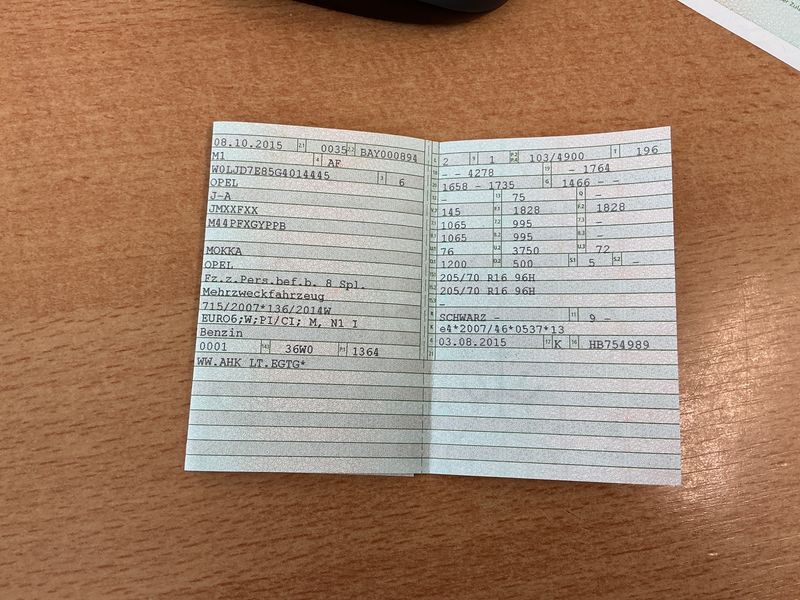 08.10.2015 2.1 0035 2.2 BAY000894
M1 4 AF
W0LJD7E85G4014445 3 6
OPEL
J-A
JMXXFXX
M44PFXGYPPB
MOKKA
OPEL
Fz.z.Pers.bef.b. 8 Spl.
Mehrzweckfahrzeug
715/2007*136/2014W
EURO6;W;PI/CI; M, N1 I
Benzin
0001 14.1 36W0 P.1 1364
WW.AHK LT.EGTG*
L 2 9 1 P.2 P.4 103/4900 T 196
18 - - 4278 19 - 1764
20 1658 - 1735 G 1466 - -
- 13 75 Q -
145 8.1 1828 F.2 1828
1065 7.2 995 7.3 -
1065 8.2 995 8.3 -
76 U.2 3750 U.3 72
1200 O.2 500 S.1 5 S.2 -
205/70 R16 96H
205/70 R16 96H
-
R SCHWARZ - 11 9 -
K e4*2007/46*0537*13
6 03.08.2015 17 K 16 HB754989
21